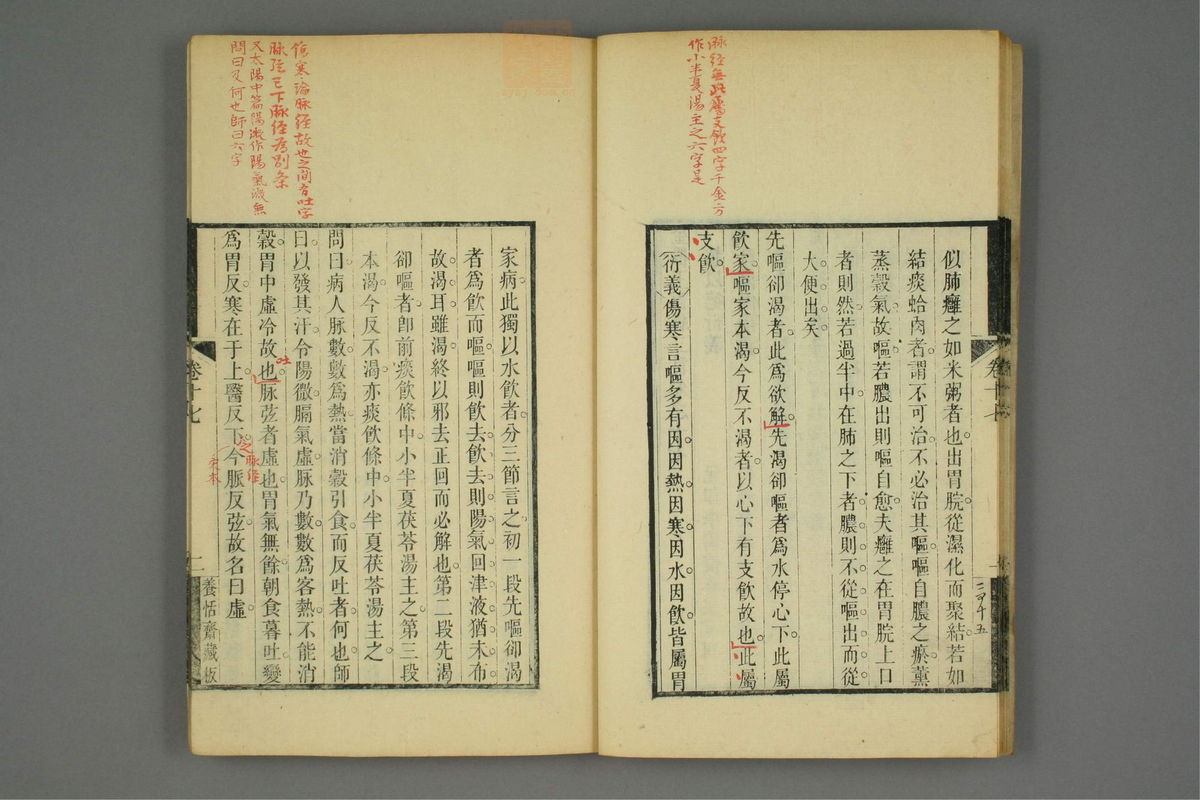 脉經無此屬支飲四字千金二方
作小半夏湯主之六字是
似肺癰之如米粥者也出胃脘從濕化而聚結若如
結痰蛤肉者謂不可治不必治其嘔嘔自膿之瘀薰
蒸穀氣故嘔若膿出則嘔自愈夫癰之在胃脘上口
者則然若過半中在肺之下者膿則不從嘔出而從
大便出矣
先嘔卻渴者此為欲解先渴卻嘔者為水停心下此屬
飲家嘔家本渴今反不渴者以心下有支飲故也此屬
支飲
衍義傷寒言嘔多有因因熱因寒因水因飲皆屬胃
卷十七
傷寒論脉經故也之間有吐字
脉弦已下脉經為別条
又太陽中篇陽微作陽氣微無
問曰又何也師曰六字
家病此獨以水飲者分三節言之初一段先嘔卻渴
者為飲而嘔嘔則飲去飲去則陽氣回津液猶未布
故渴耳雖渴終以邪去正回而必解也第二段先渴
卻嘔者即前痰飲條中小半夏茯苓湯主之第三段
本渴今反不渴亦痰飲條中小半夏茯苓湯主之
問曰病人脉數數為熱當消穀引食而反吐者何也師
曰以發其汗令陽微膈氣虛脉乃數數為客熱不能消
穀胃中虛冷故也脉弦者虛也胃氣無餘朝食暮吐變
吐
為胃反寒在于上醫反下今脈反弦故名曰虛
之脉經
卷十七
二
養恬齋藏板